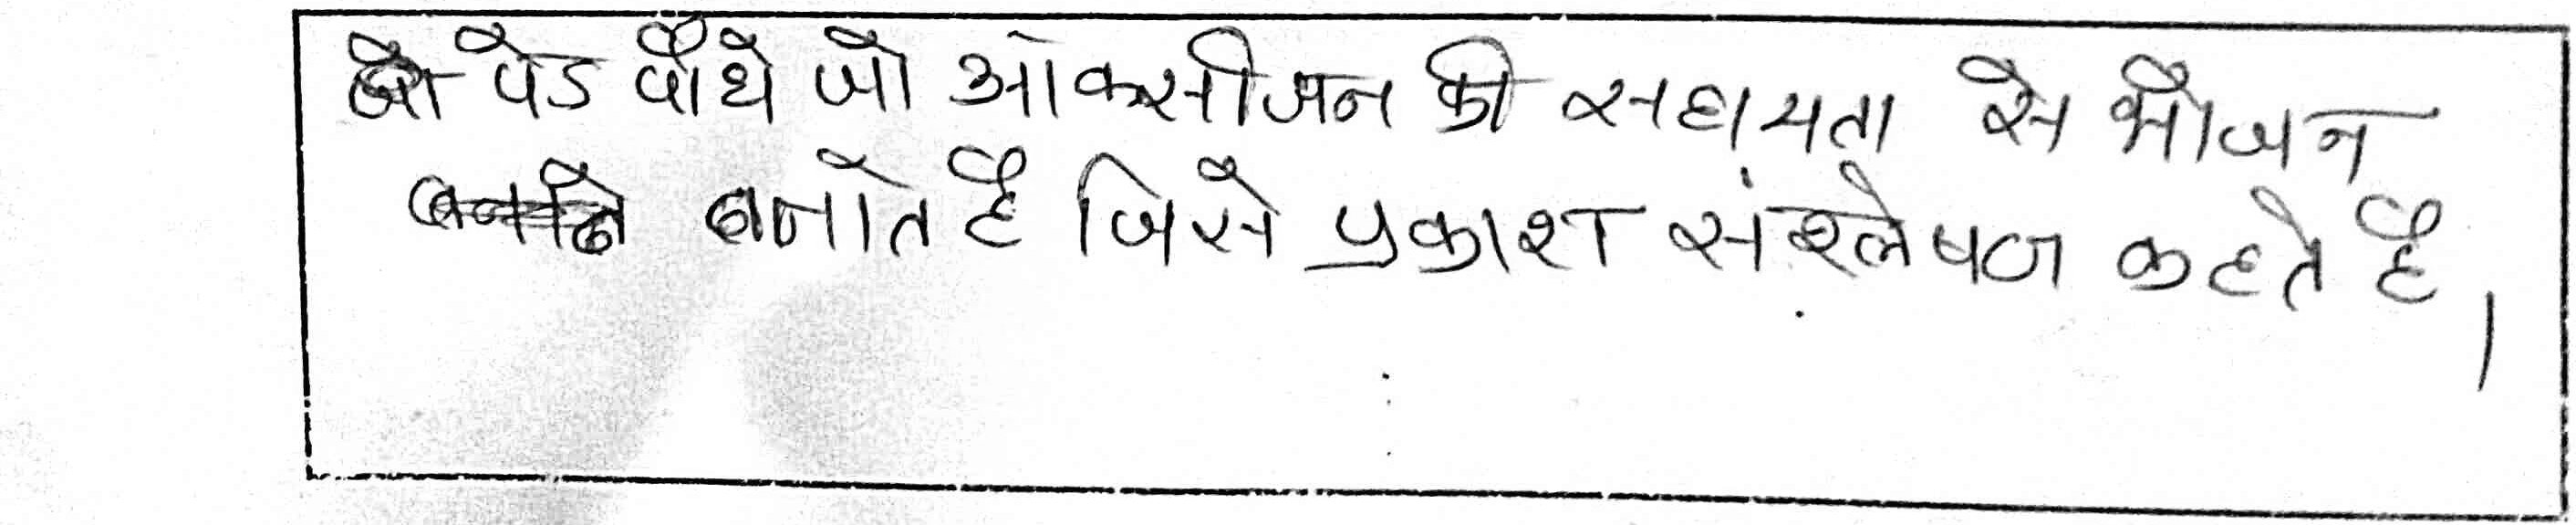 वो पेड पौधे जो ऑकसीजन की सहायता से भोजन
बनाते है जिसे प्रकाश संश्लेषण कहते है।